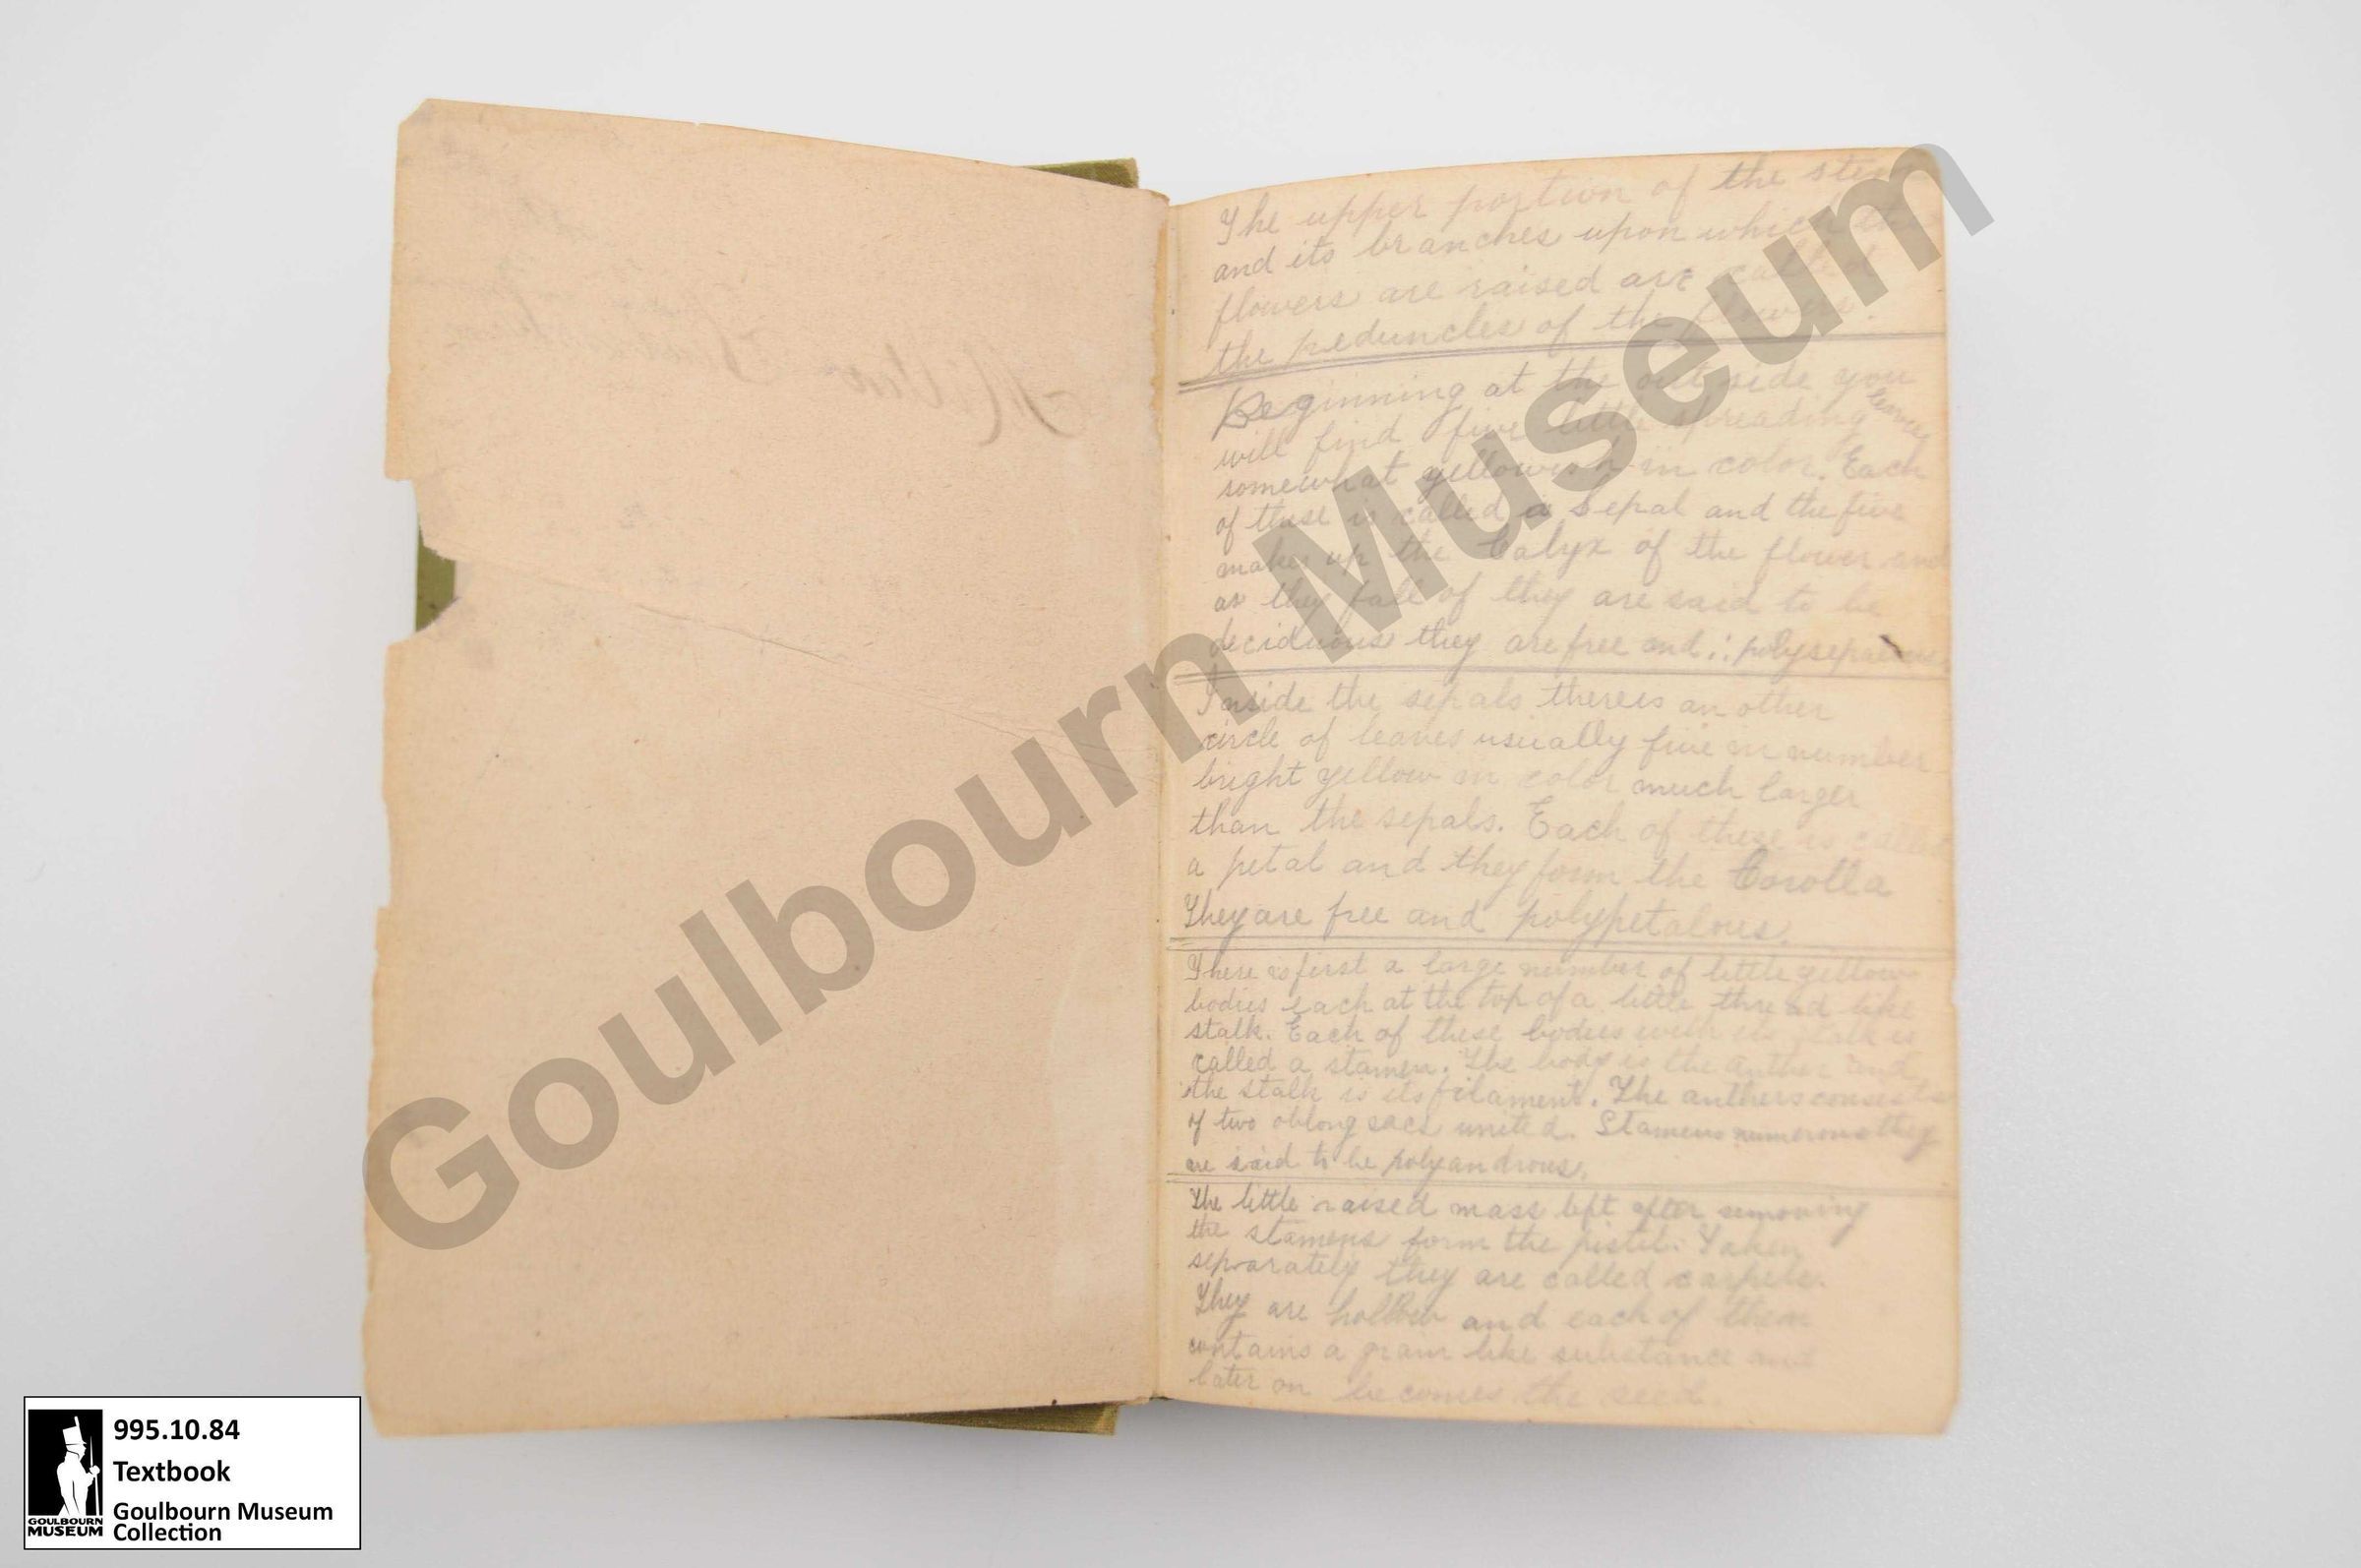 The upper portion of the stem
and its branches upon which the
flowers are raised are called
the peduncles of the flowers.
Beginning at the outside you
will find five little spreading leaves
somewhat yellowish in color. Each
of these is called a Sepal and the five
makes up the Calyx of the flower and
as they fall of they are said to be
deciduous they are free and ∴ polysepalous
Inside the sepals thereis an other
circle of leaves usually five in number
bright yellow in color much larger
than the sepals. Each of these is called
a petal and they form the Corolla
They are free and polypetalous.
There is first a large number of little yellow
bodies each at the top of a little thread like
stalk. Each of these bodies with its stalk is
called a stamen. The body is the anther and
the stalk is its filament. The anthers consists
of two oblong sacs united. Stamens numerous they
are said to be polyandrous.
The little raised mass left after removing
the stamens form the pistil. Taken
separately they are called carpels.
They are hollow and each of them
contains a grain like substance and
later on becomes the seed.
Goulbourn Museum
995.10.84
Textbook
Goulbourn Museum
Collection
GOULBOURN
MUSEUM